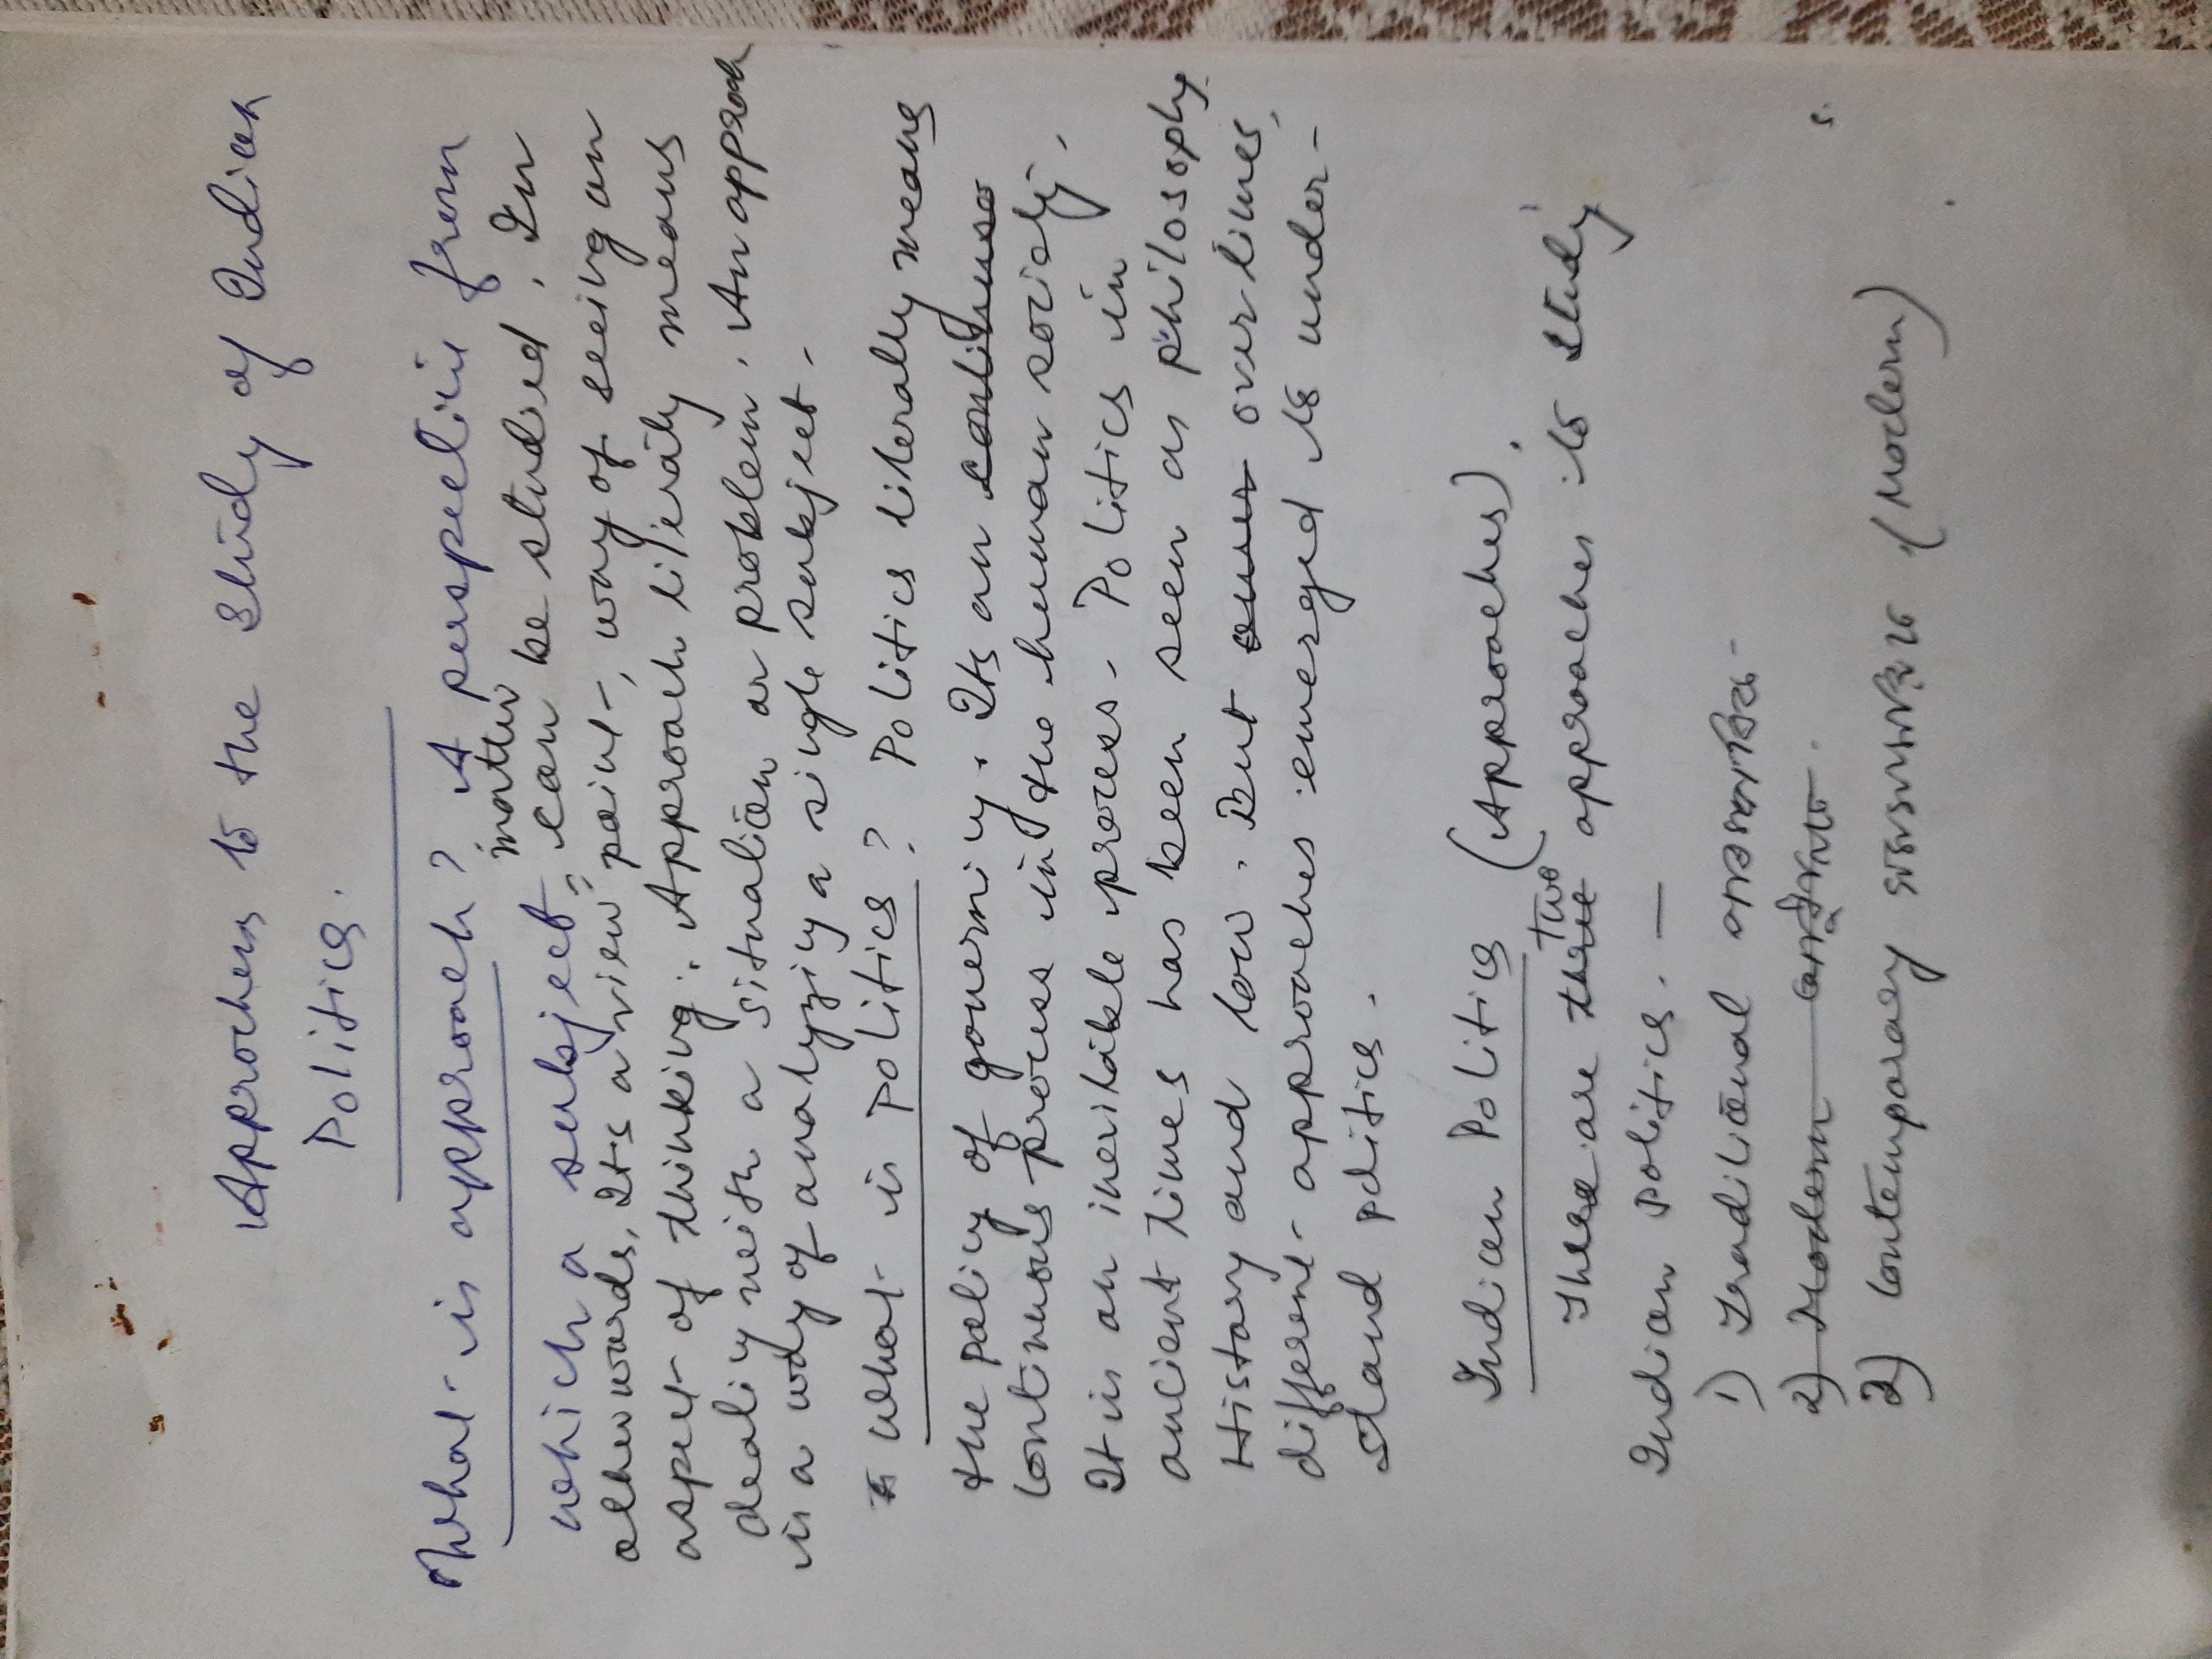 Approchers to the Study of Indian
Politics.
What is approach? A perspective from
which a subject matter can be studied. In
otherwords, Its a view point, way of seeing an
aspect of thinking. Approach literaly means
dealing with a situation or problem. An approach
is a way of analyzing a single subject.
* What is Politics? Politics literally means
the policy of governing. Its an continuso
continuous process in the human society.
It is an inevitable process. Politics in
ancient times has been seen as philosophy
History and law. But over times,
different approaches emerged to under-
stand politics.
Indian Politics (Approaches).
There are three two approaches to study
Indian politics. —
1) Traditional
2) Modern
2) Contemporary (Modern)